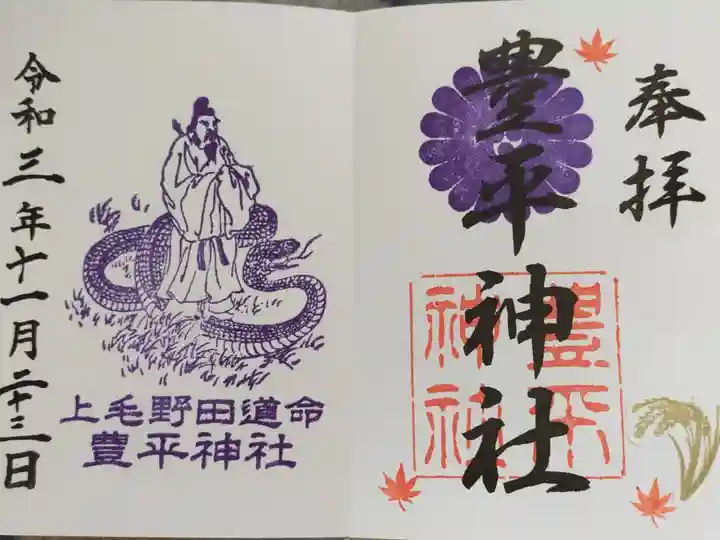 奉拝
豊平神社
豊平
神社
上毛野田道命
豊平神社
令和三年十一月二十三日